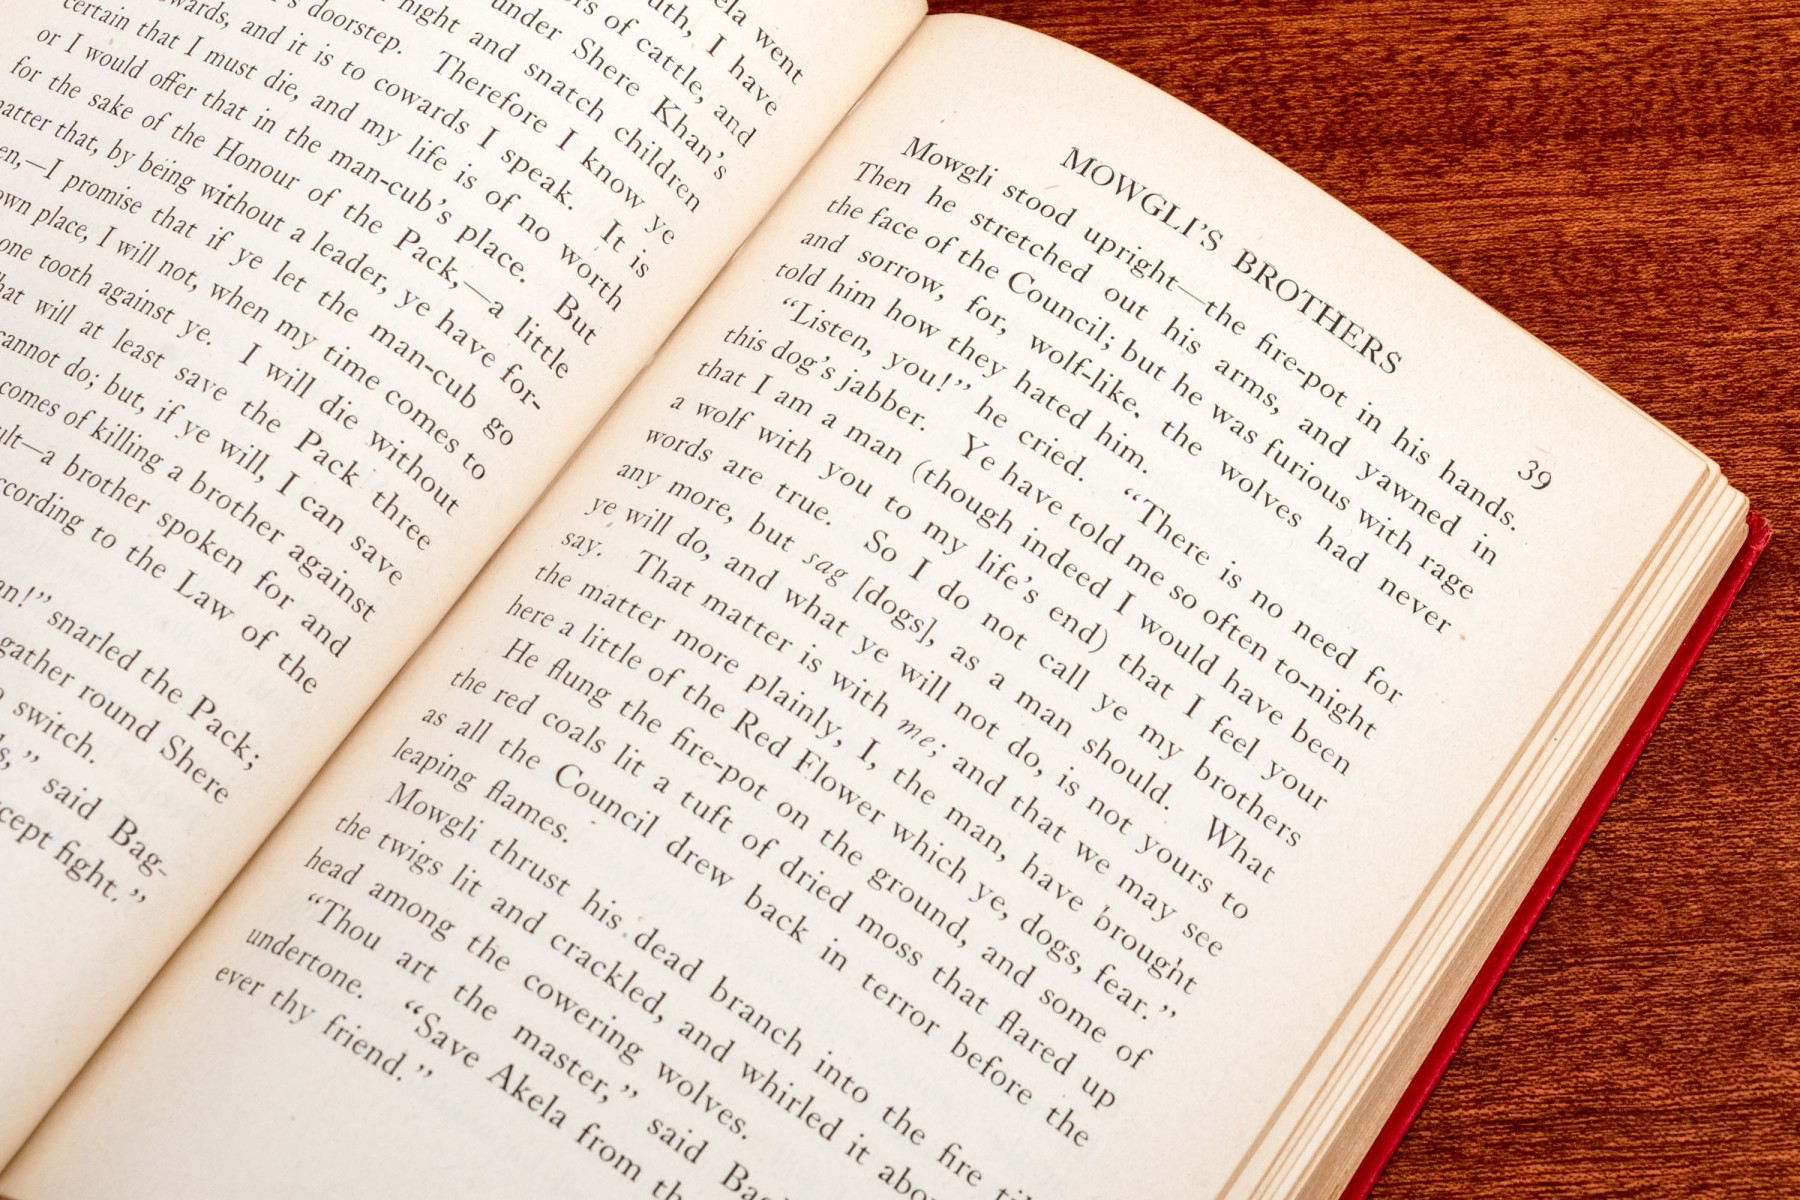 ela went
uth, I have
ers of cattle, and
under Shere Khan's
night and snatch children
's doorstep. Therefore I know ye
owards, and it is to cowards I speak. It is
certain that I must die, and my life is of no worth
or I would offer that in the man-cub's place. But
for the sake of the Honour of the Pack,—a little
matter that, by being without a leader, ye have for-
en,—I promise that if ye let the man-cub go
own place, I will not, when my time comes to
one tooth against ye. I will die without
hat will at least save the Pack three
cannot do; but, if ye will, I can save
comes of killing a brother against
ult—a brother spoken for and
ccording to the Law of the
an!" snarled the Pack;
gather round Shere
switch.
said Bag-
cept fight."
MOWGLI'S BROTHERS 39
Mowgli stood upright—the fire-pot in his hands.
Then he stretched out his arms, and yawned in
the face of the Council; but he was furious with rage
and sorrow, for, wolf-like, the wolves had never
told him how they hated him.
"Listen, you!" he cried. "There is no need for
this dog's jabber. Ye have told me so often to-night
that I am a man (though indeed I would have been
a wolf with you to my life's end) that I feel your
words are true. So I do not call ye my brothers
any more, but sag [dogs], as a man should. What
ye will do, and what ye will not do, is not yours to
say. That matter is with me; and that we may see
the matter more plainly, I, the man, have brought
here a little of the Red Flower which ye, dogs, fear."
He flung the fire-pot on the ground, and some of
the red coals lit a tuft of dried moss that flared up
as all the Council drew back in terror before the
leaping flames.
Mowgli thrust his dead branch into the fire
the twigs lit and crackled, and whirled it abo
head among the cowering wolves.
"Thou art the master," said Ba
undertone. "Save Akela from th
ever thy friend."